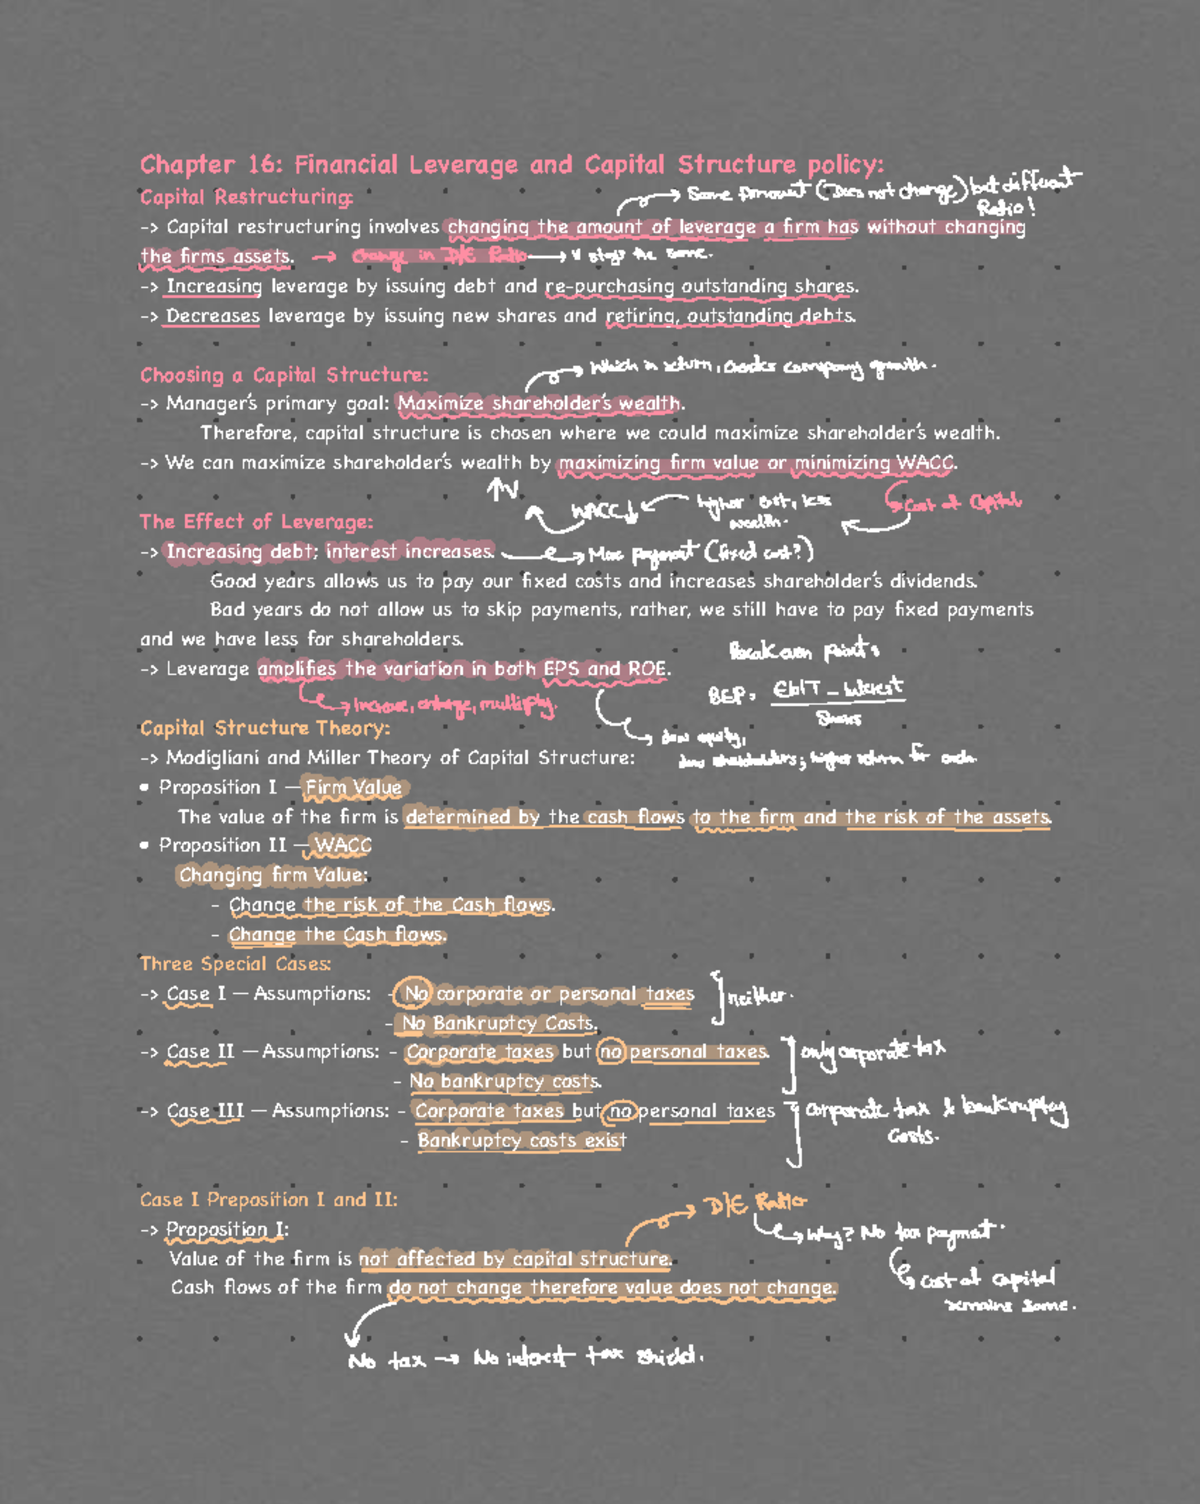 Chapter 16: Financial Leverage and Capital Structure policy:
Capital Restructuring:
→ Same Amount (Does not change) but different
Ratio!
-> Capital restructuring involves changing the amount of leverage a firm has without changing
the firms assets. → change in D/E Ratio → V stays the same.
-> Increasing leverage by issuing debt and re-purchasing outstanding shares.
-> Decreases leverage by issuing new shares and retiring, outstanding debts.
Choosing a Capital Structure:
→ Which in return, company growth.
-> Manager's primary goal: Maximize shareholder's wealth.
Therefore, capital structure is chosen where we could maximize shareholder's wealth.
-> We can maximize shareholder's wealth by maximizing firm value or minimizing WACC.
↑V
WACC↓ ← higher cost, less
wealth.
→ Cost of Capital
The Effect of Leverage:
-> Increasing debt; interest increases. → More payment (fixed cost?)
Good years allows us to pay our fixed costs and increases shareholder's dividends.
Bad years do not allow us to skip payments, rather, we still have to pay fixed payments
and we have less for shareholders.
Break even points
-> Leverage amplifies the variation in both EPS and ROE.
→ Increase, enlarge, multiply.
BEP: EBIT - Interest
Shares
Capital Structure Theory:
→ less equity,
less shareholders; higher return for each.
-> Modigliani and Miller Theory of Capital Structure:
• Proposition I — Firm Value
The value of the firm is determined by the cash flows to the firm and the risk of the assets.
• Proposition II — WACC
Changing firm Value:
- Change the risk of the Cash flows.
- Change the Cash flows.
Three Special Cases:
-> Case I — Assumptions: - No corporate or personal taxes
- No Bankruptcy Costs.
neither.
-> Case II — Assumptions: - Corporate taxes but no personal taxes.
- No bankruptcy costs.
only corporate tax
-> Case III — Assumptions: - Corporate taxes but no personal taxes
- Bankruptcy costs exist
corporate tax & bankruptcy
costs.
Case I Preposition I and II:
→ D/E Ratio
-> Proposition I:
→ Why? No tax payment.
Value of the firm is not affected by capital structure.
→ cost of capital
remains same.
Cash flows of the firm do not change therefore value does not change.
No tax → No interest tax shield.